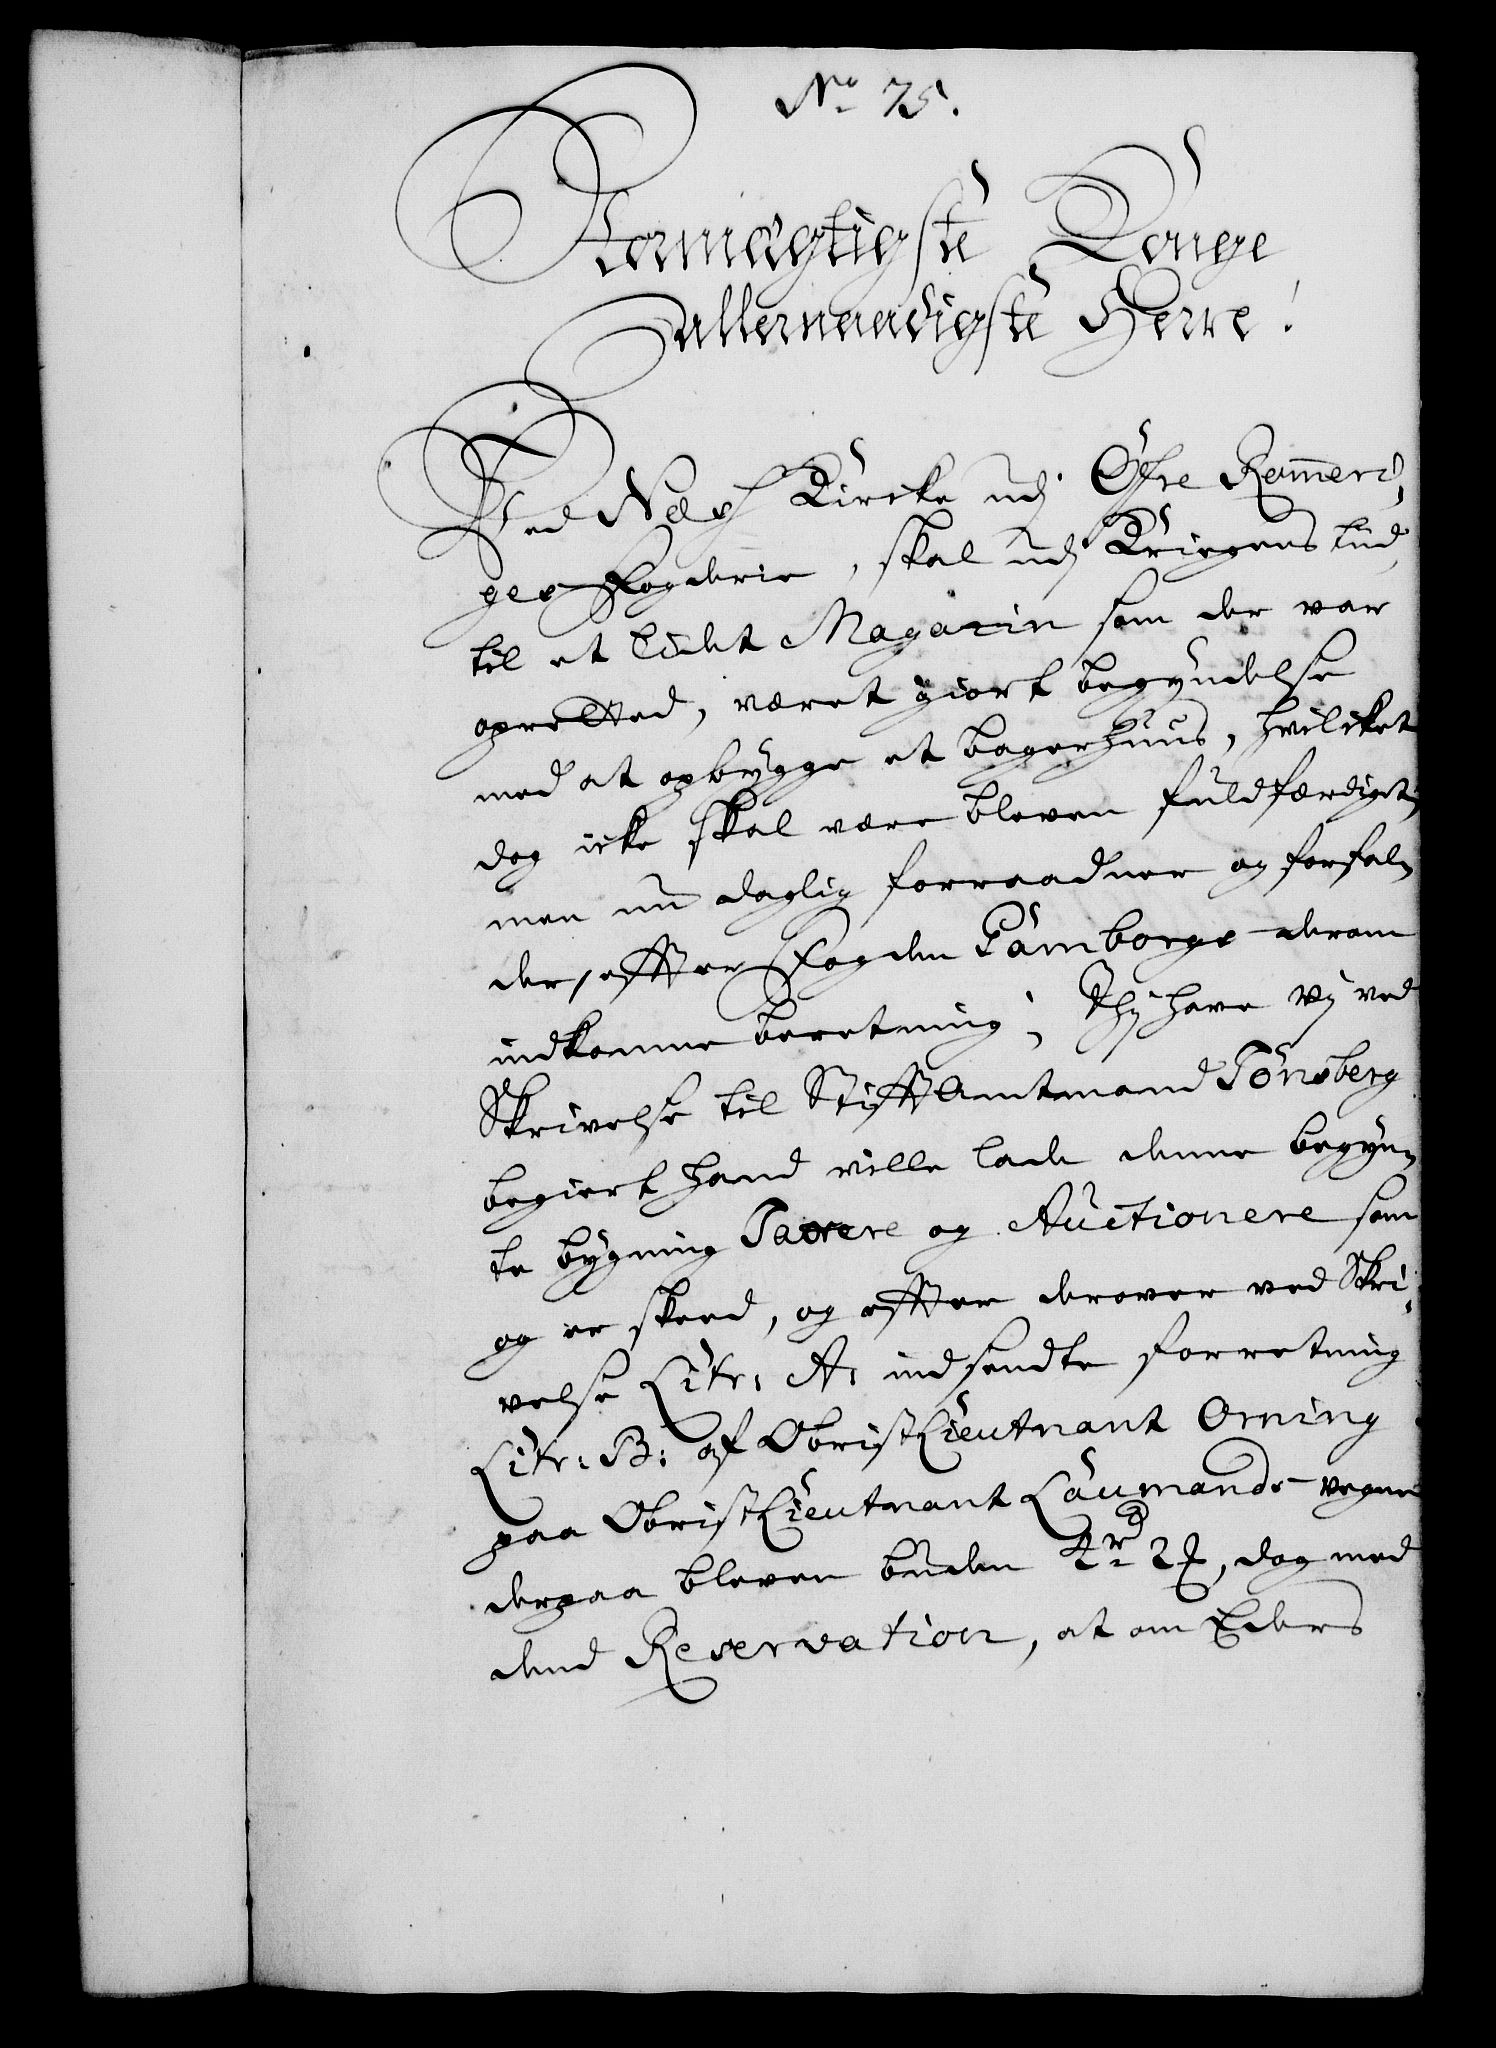 No 75.
Stormægtigste Konge
allernaadigste Herre!
Ved Næss Kircke udj Öfre Romeri,
ges Fogderie, skal udj Kriegens tid
til et lidet Magazin som der var
opretted, været giort begyndelse
med at opbygge et bagerhuus, hvilcket
dog icke skal være bleven fuldfærdiget,
men nu daglig forraadner og forfal,
der, effter Fogden Tamborgs derom
indkomne beretning, Thj have Vj ved
Skrivelse til StifftAmtmand Tönsberg
begiert hand ville lade denne begyn,
te bygning Taxere og Auctionere som
og er skeed, og effter derover ved Skri,
velse Litr: A: indsendte forretning
Litr: B: af ObristLieutnant Orning
paa ObristLieutnant Laumands vegne
derpaa bleven buden 4 rd 2 ß, dog med
dend Reservation, at om Eders